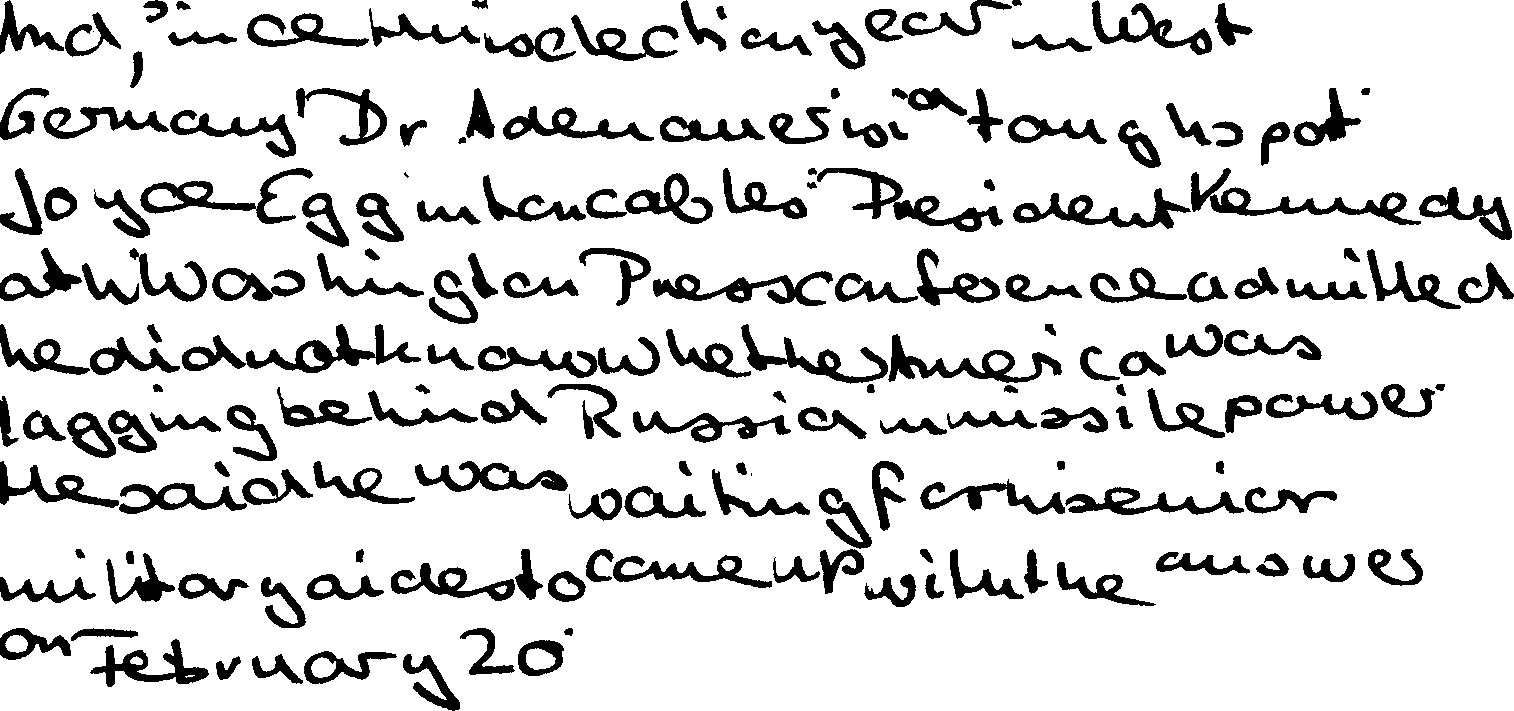 And, since this is election year in West
Germany, Dr. Adenauer is in a tough spot.
Joyce Eggington cables: President Kennedy
at his Washington Press conference admitted
he did not know whether America was
lagging behind Russia in missile power.
He said he was waiting for his senior
military aides to come up with the answer
on February 20.